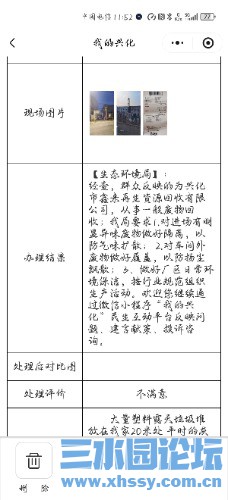 中国电信 11:52
我的兴化
现场图片
【生态环境局】：
经查，群众反映的为兴化
市鑫来再生资源回收有限
公司，从事一般废物回
收；我局要求：1.对进场有明
显异味废物做好隔离，以
防气味扩散；2.对车间外
废物做好覆盖，以防扬尘
飘散；3、做好厂区日常环
境保洁，按行业规范组织
生产活动。欢迎您继续通
过微信小程序“我的兴
化”民生互动平台反映问
题、建言献策、投诉咨
询。
办理结果
处理后对比图
处理评价
不满意
大量塑料露天垃圾堆
放在我家20米处 平时的灰
三水园论坛
www.xhssy.com.cn